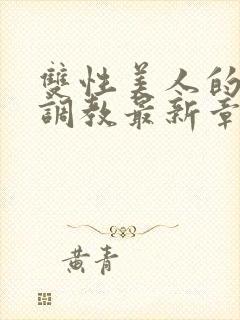 雙性美人的
調教最新章
黃青